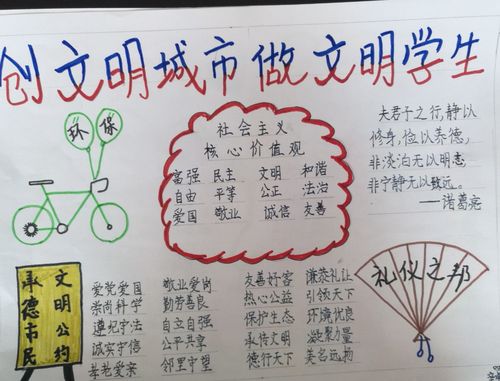 创文明城市做文明学生
环 保
社会主义
核心价值观
富强 民主 文明 和谐
自由 平等 公正 法治
爱国 敬业 诚信 友善
夫君子之行,静以
修身,俭以养德,
非淡泊无以明志,
非宁静无以致远。
——诸葛亮
承德市民
文明公约
爱党爱国
崇尚科学
遵纪守法
诚实守信
孝老爱亲
敬业爱岗
勤劳善良
自立自强
公平共享
邻里守望
友善好客
热心公益
保护生态
承传文明
德行天下
谦恭礼让
引领天下
环境优良
凝聚力量
美名远扬
礼仪之邦